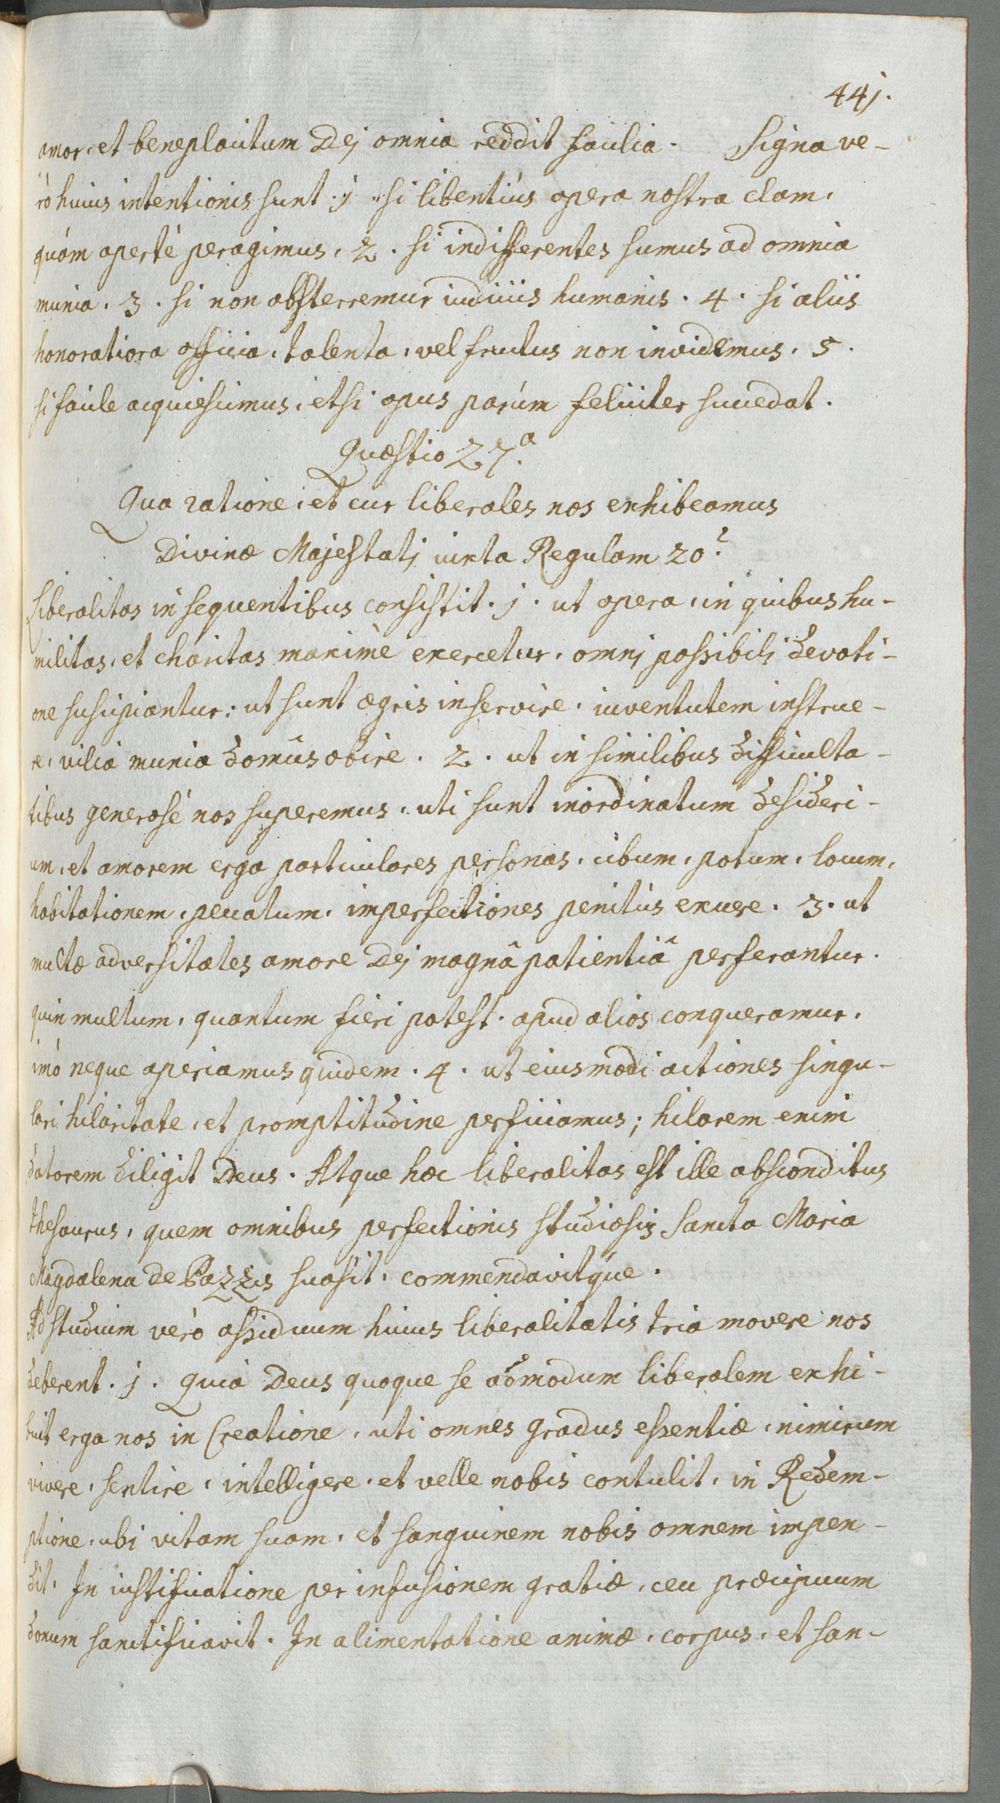 441.
amor, et beneplacitum Dej omnia reddit facilia. Signa ve-
rò huius intentionis sunt. 1. si libentiùs opera nostra clam,
quàm apertè peragimus, 2. si indifferentes sumus ad omnia
munia. 3. si non absterremur iudiciis humanis. 4. si aliis
honoratiora officia, talenta, vel fructus non invidemus. 5.
si facile acquiescimus, etsi opus parùm feliciter succedat.
Quæstio 27.ª
Qua ratione, et cur liberales nos exhibeamus
Divinæ Majestatj iuxta Regulam 20.
Liberalitas in sequentibus consistit. 1. ut opera, in quibus hu-
militas, et charitas maximè exercetur, omnj possibilj devoti-
one suscipiantur: ut sunt ægris inservire, iuventutem instrue-
re, vilia munia domûs obire. 2. ut in similibus difficulta-
tibus generosè nos superemus, uti sunt inordinatum desideri-
um, et amorem erga particulares personas, cibum, potum, locum,
habitationem, peccatum, imperfectiones penitùs exuere. 3. ut
multæ adversitates amore Dej magnâ patientiâ perferantur.
quin multum, quantum fieri potest, apud alios conqueramur,
imò neque aperiamus quidem. 4. ut eiusmodi actiones singu-
lari hilaritate, et promptitudine perficiamus; hilarem enim
datorem diligit Deus. Atque hæc liberalitas est ille absconditus
thesaurus, quem omnibus perfectionis studiosis Sancta Maria
Magdalena de Pazzis suasit, commendavitque.
Ad studium verò assiduum huius liberalitatis tria movere nos
deberent. 1. Quia Deus quoque se admodum liberalem exhi-
buit erga nos in Creatione, uti omnes gradus essentiæ, nimirum
vivere, sentire, intelligere, et velle nobis contulit, in Redem-
ptione, ubi vitam suam, et sanguinem nobis omnem impen-
dit. In iustificatione per infusionem gratiæ, ceu præcipuum
donum sanctificavit. In alimentatione animæ, corpus, et san-